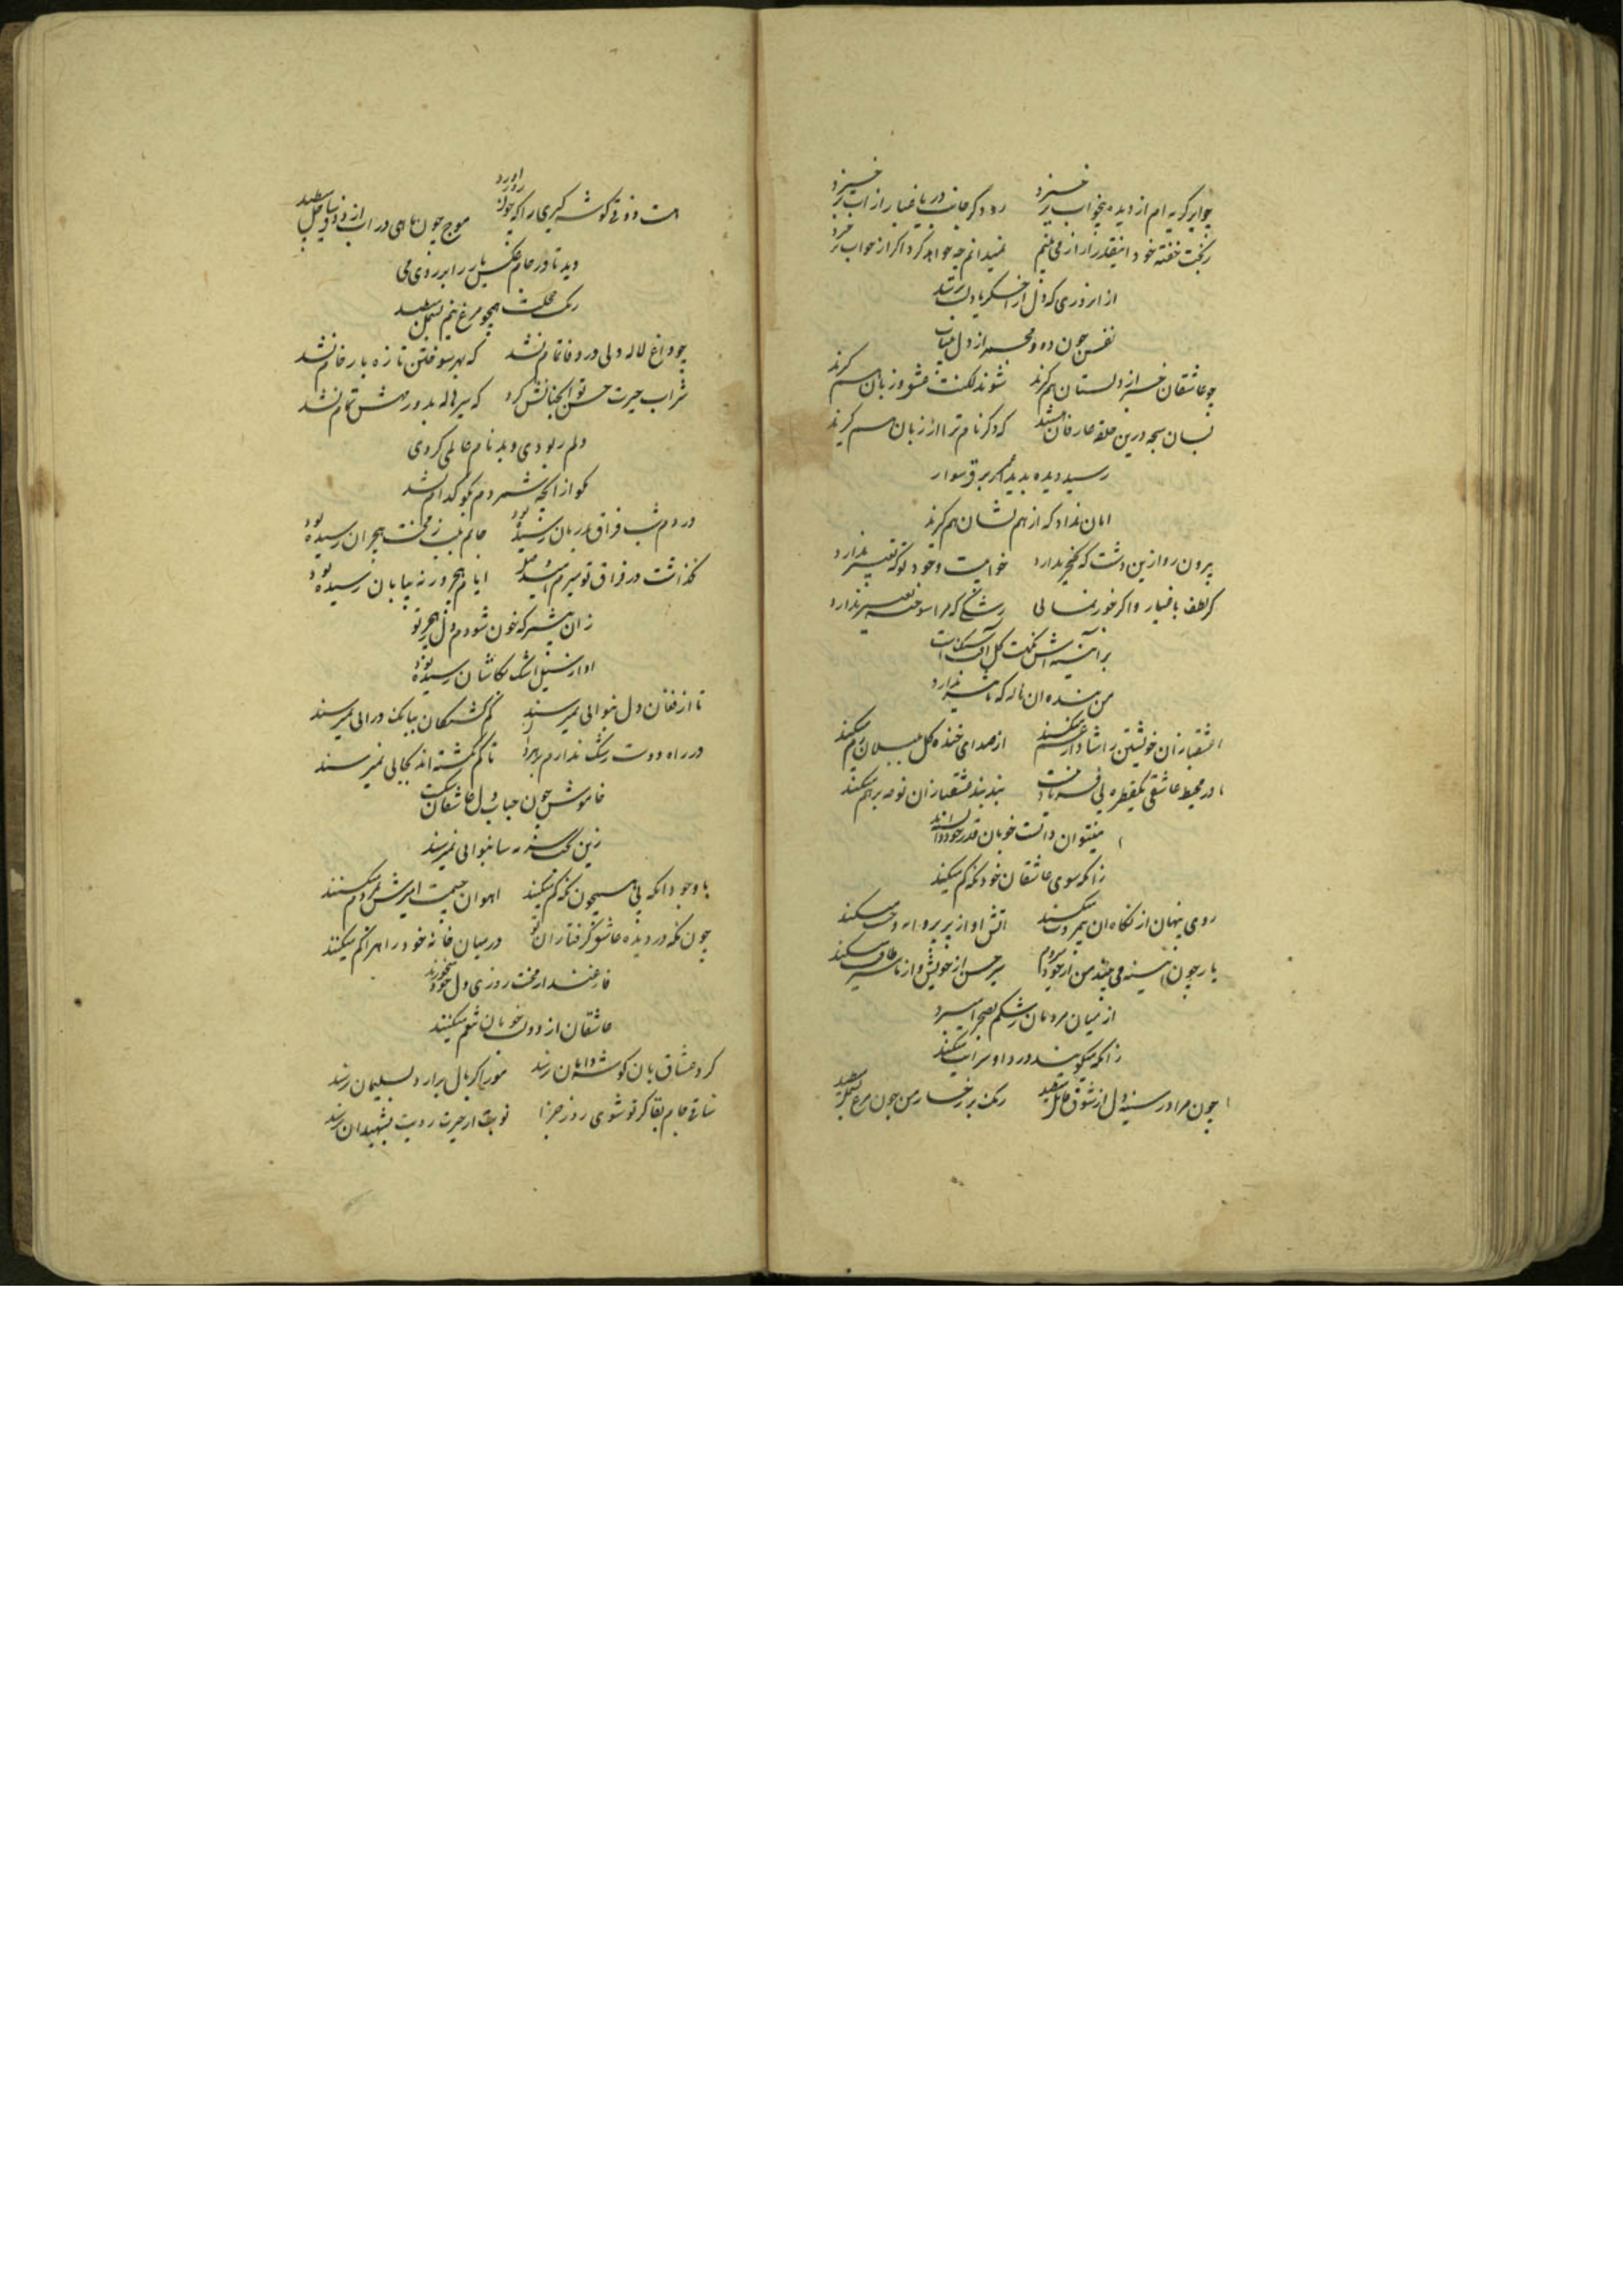 چو ابر گریه ام از دیده بیخواب برخیزد رود گر جانب دریا غبار از آب برخیزد
ز بخت خفته خود اینقدر آزار می بینم نمیدانم چه خواهد کرد اگر از خواب برخیزد
از آن روزی که دل از
نفس چون دود مجمر از دل بیتاب
چو عاشقان خبر از دلستان هم گیرند شوند لکنت عشق و زبان هم گیرند
بسان سبحه درین حلقه عارفان که ذکر نام ترا از زبان هم گیرند
رسید دیده بدیدار برق سوار
امان نداد که از هم نشان هم گیرند
بیرون رو ازین دشت که نخچیر ندارد خوابیست وجود تو که تعبیر ندارد
گر لطف باغیار و اگر خور نمائی رشکی که مرا سوخته تغییر ندارد
بر آینه اش نکهت گل
من بنده آن ناله که تاثیر ندارد
عشقبازان خویشتن را شاد از غم میکنند از صدای خنده گل بلبلان رم میکنند
در محیط عاشقی یکقطره بی بند بند عشقبازان نوحه بر هم میکنند
میتوان دانست خوبان قدر خود دانسته اند
زانکه سوی عاشقان خود نگه کم میکنند
روی پنهان از نگاه آن بیمروت میکند آتش او از پر پروانه وحشت میکند
یار چون آیینه می بیند من از خود میروم سیر حسن از خویش و از ما میکند
از میان مردمان رشکم بصحرا میبرد
زانکه میگویند درد او سرایت میکند
چون مرا در سینه دل از شوق قاتل میطپد رنگ بر رخسار من چون مرغ بسمل میطپد
هست ذوقی گوشه گیری را که چون زور آورد موج چون ماهی در آب از دوری ساحل میطپد
دید تا در جام عکس یار را بر روی می
رنگ همچو مرغ نیم بسمل میطپد
چو داغ لاله دلی در وفا تمام نشد که بهر سوختن تازه بار خام نشد
شراب حیرت حسن تو آنچنانش کرد که سیر هاله بدور مهش تمام نشد
دلم ربودی و بدنام عالمی کردی
مگو از آنچه شمردم بگو کدام نشد
دردم شب فراق بدرمان رسیده بود جانم بلب ز محنت هجران رسیده بود
نگذاشت در فراق تو میرم امید وصل ایام هجر ورنه بپایان رسیده بود
زان پیشتر که خون شودم دل ز هجر تو
آواز سیل اشک بکاشان رسیده بود
تا از فغان دل بنوائی نمیرسند گم گشتگان ببانگ درائی نمیرسند
در راه دوست رشک ندارم براهبر تا گم نگشته اند بجائی نمیرسند
خاموش چون حباب دل عاشقان شکست
زین بنوائی نمیرسند
با وجود آنکه بی همچون نگه کم میکنند آهوان چشمت آمیزش بمردم میکنند
چون نگه در دیده عاشق گرفتاران تو در میان خانه خود راه را گم میکنند
فارغند از محنت روزی دل خود میخورند
عاشقان از دولت خوبان تنعم میکنند
گرد عشاق بان گوشه دامان نرسد مور اگر بال برآرد بسلیمان نرسد
ساقی جام بقا گر تو شوی روز جزا نوبت از حیرت رویت بشهیدان نرسد